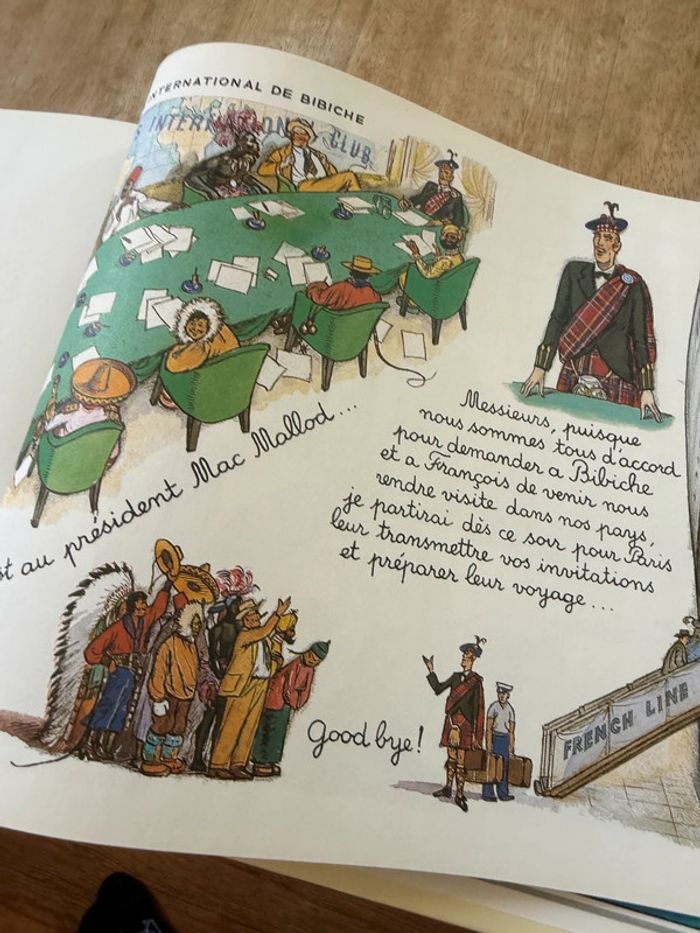 INTERNATIONAL DE BIBICHE
S INTERNATIONAL CLUB
st au président Mac Mallod...
Messieurs, puisque
nous sommes tous d'accord
pour demander a Bibiche
et a François de venir nous
rendre visite dans nos pays,
je partirai dès ce soir pour Paris
leur transmettre vos invitations
et préparer leur voyage...
Good bye!
FRENCH LINE